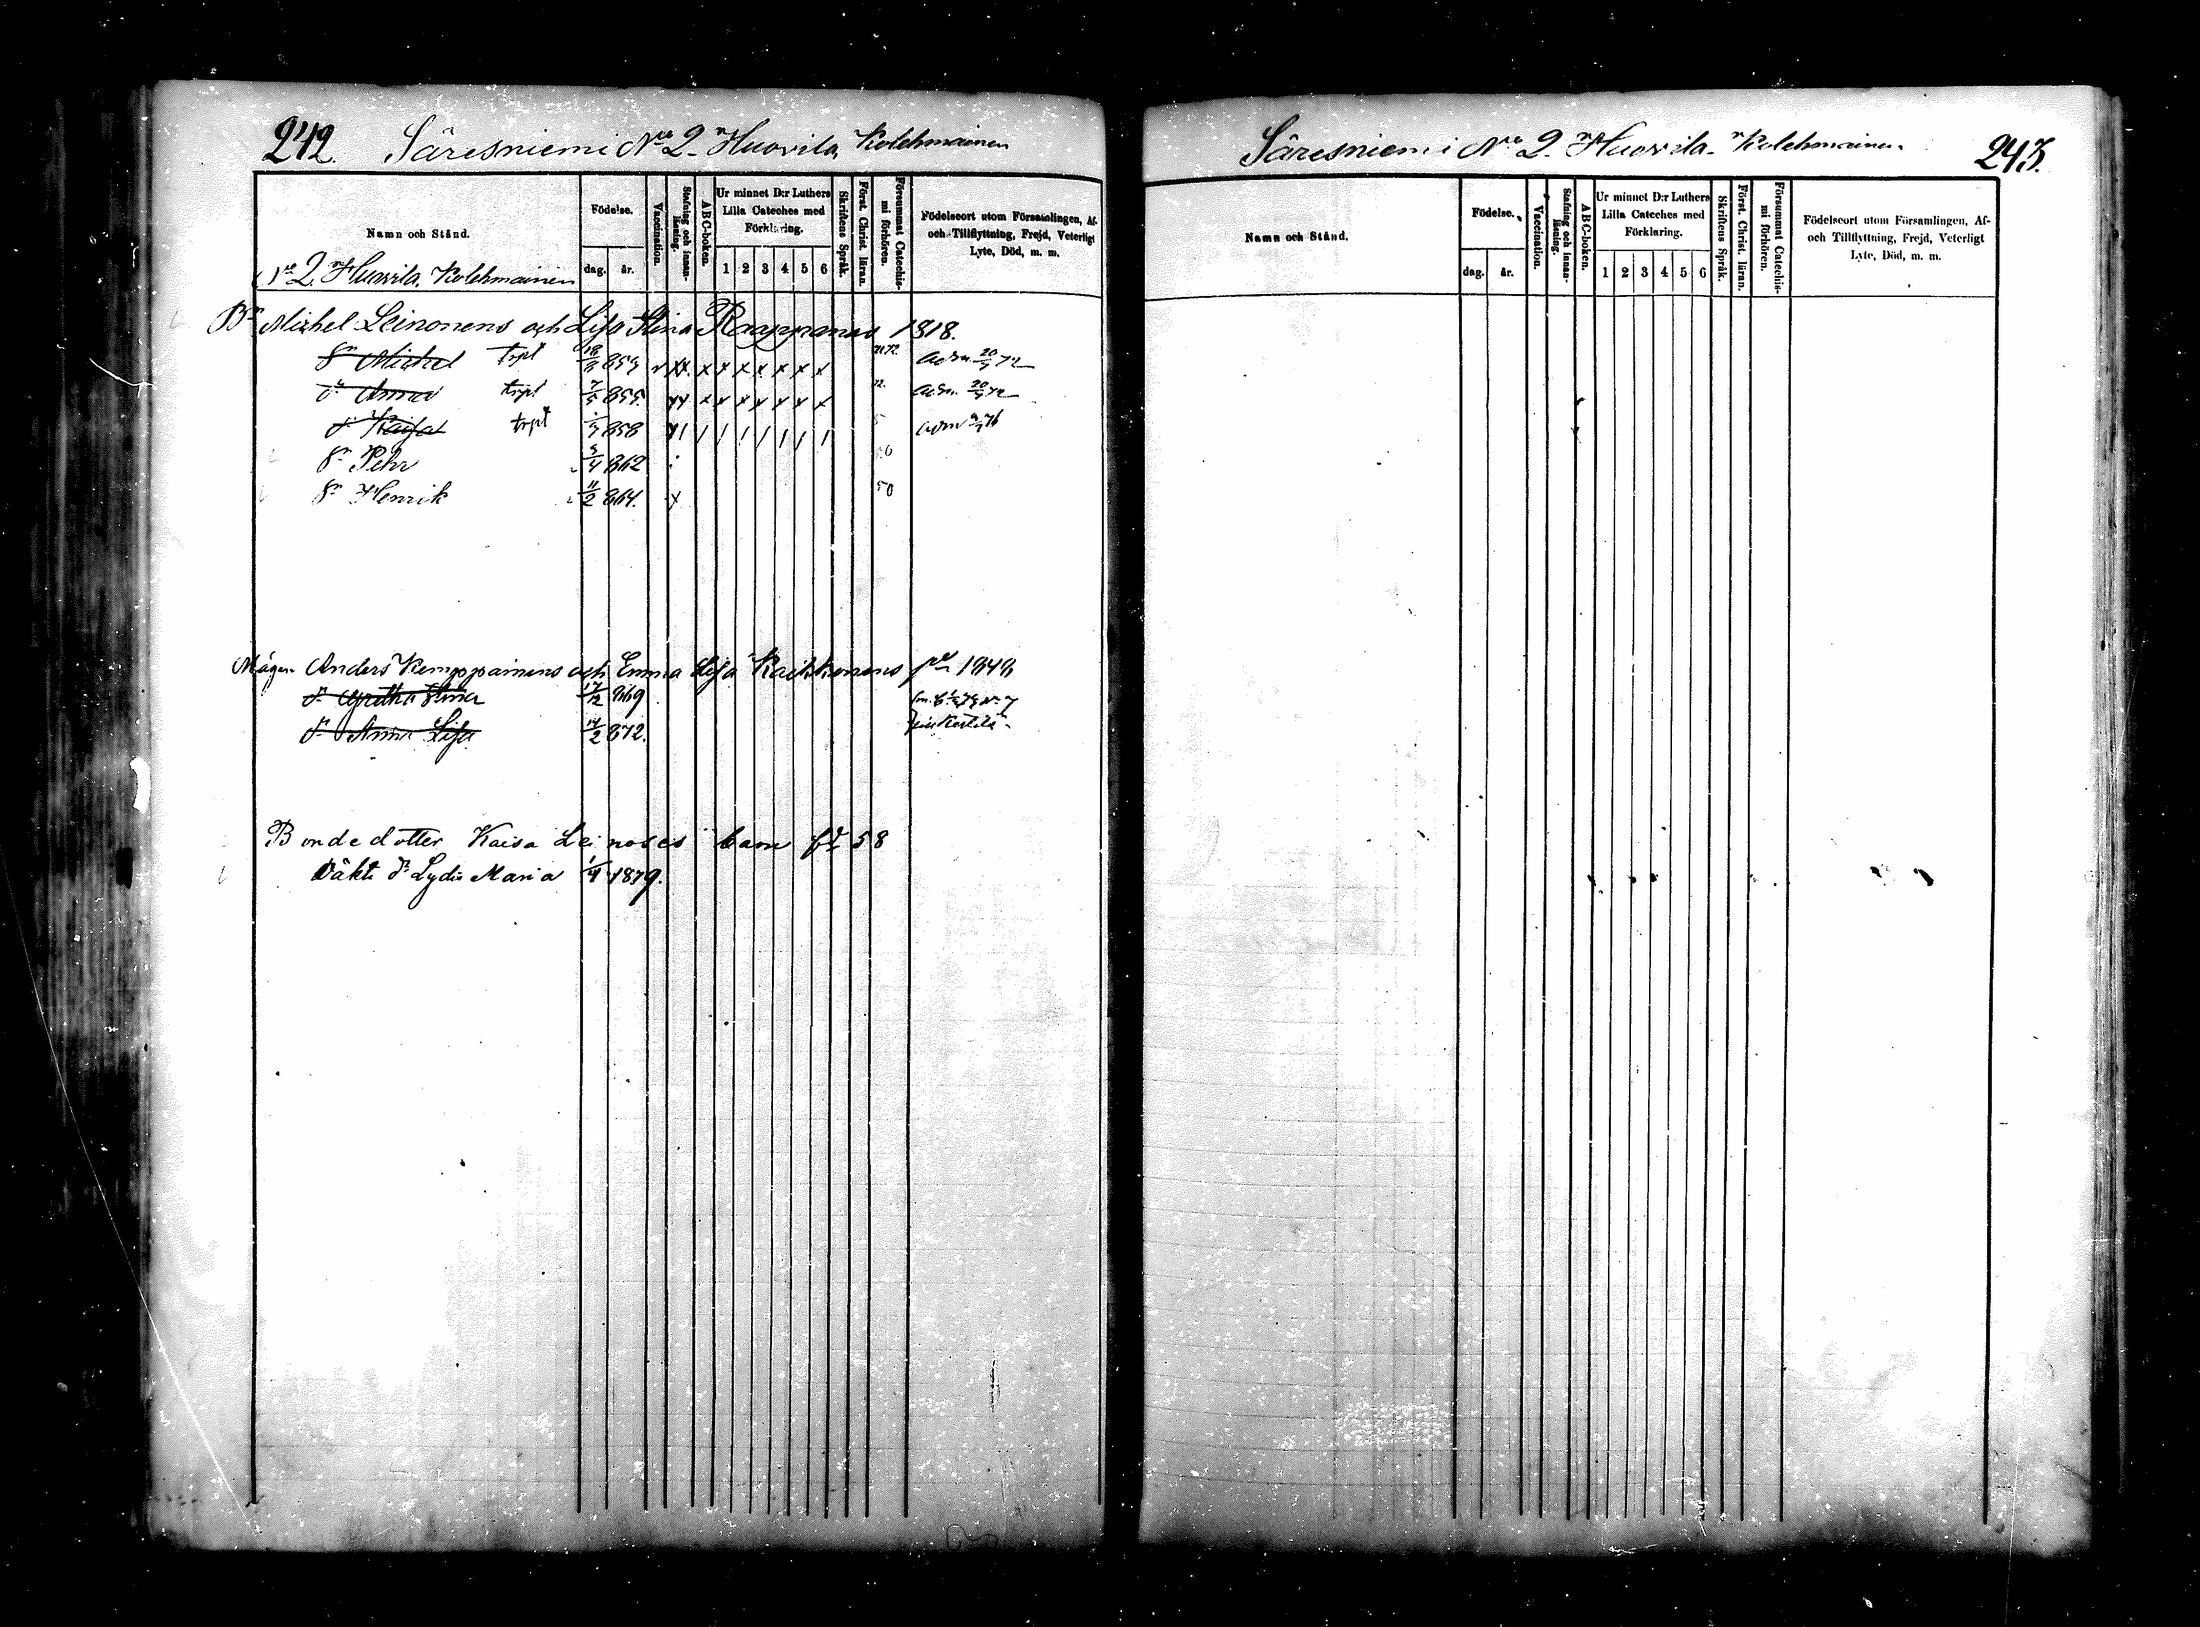 242. Säresniemi No 2. Huovila, Kolehmainen
Namn och Stånd.
Födelse.
dag. år.
Vaccination.
Stafning och innan-läsning.
ABC-boken.
Ur minnet D:r Luthers
Lilla Cateches med
Förklaring.
1 2 3 4 5 6
Skriftens Språk.
Först. Christ. läran.
Försummat Catechis-
mi förhören.
Födelseort utom Församlingen, Af-
och Tillflyttning, Frejd, Veterligt
Lyte, Död, m. m.
No 2. Huovila, Kolehmainen
Bn Michel Leinonens och Lisa Stina Raappanas 1818.
Sn Michel 853 x x x x x x
dr Anna 855 x x x x x x
dr Kaisa 858 / / / / / /
Sn Pehr 3/4 862
Sn Henrik 11/2 864. x 50
Mågen Anders Kemppainens och Emma Lisa Karkkonens 1849
dr Gretha Stina 869
dr Anna Lisa 872.
Bondedotter Kaisa Leinoses barn fd 58
Oäkta dr Lydia Maria 1/4 1879.
Säresniemi No 2. Huovila. Kolehmainen. 243.
Namn och Stånd.
Födelse.
dag. år.
Vaccination.
Stafning och innan-läsning.
ABC-boken.
Ur minnet D:r Luthers
Lilla Cateches med
Förklaring.
1 2 3 4 5 6
Skriftens Språk.
Först. Christ. läran.
Försummat Catechis-
mi förhören.
Födelseort utom Församlingen, Af-
och Tillflyttning, Frejd, Veterligt
Lyte, Död, m. m.